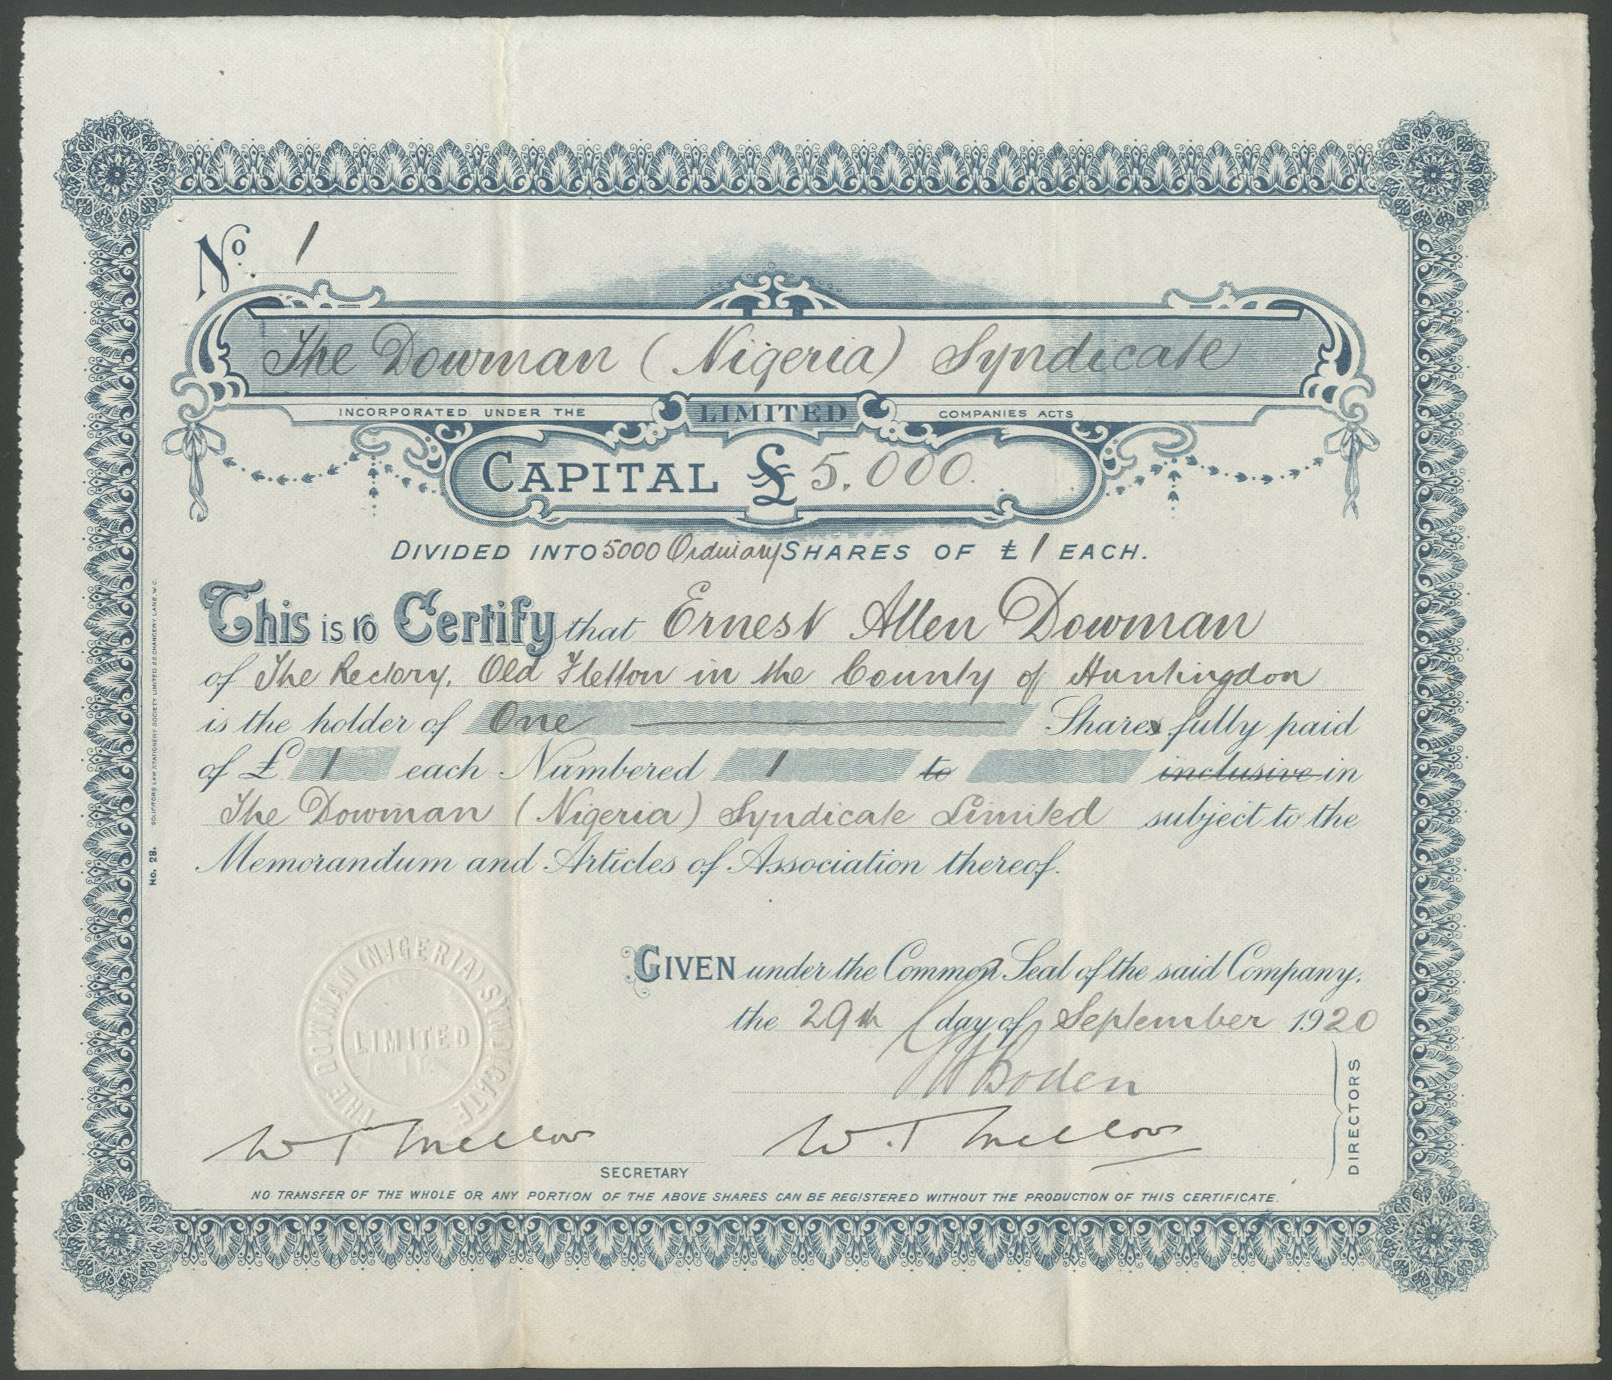 No. 1
The Dowman (Nigeria) Syndicate
INCORPORATED UNDER THE LIMITED COMPANIES ACTS
CAPITAL £ 5,000.
DIVIDED INTO 5000 Ordinary SHARES OF £ 1 EACH.
This is to Certify that Ernest Allen Dowman
of The Rectory, Old Fletton in the County of Huntingdon
is the holder of One Shares fully paid
of £ 1 each Numbered 1 to inclusive in
The Dowman (Nigeria) Syndicate Limited subject to the
Memorandum and Articles of Association thereof.
GIVEN under the Common Seal of the said Company,
the 29th day of September 1920
Boden
W T Mellor
W. T Mellor
DIRECTORS
SECRETARY
NO TRANSFER OF THE WHOLE OR ANY PORTION OF THE ABOVE SHARES CAN BE REGISTERED WITHOUT THE PRODUCTION OF THIS CERTIFICATE.
THE DOWMAN (NIGERIA) SYNDICATE
LIMITED
No. 28. SOLICITORS LAW STATIONERY SOCIETY LIMITED 22 CHANCERY LANE, W.C.